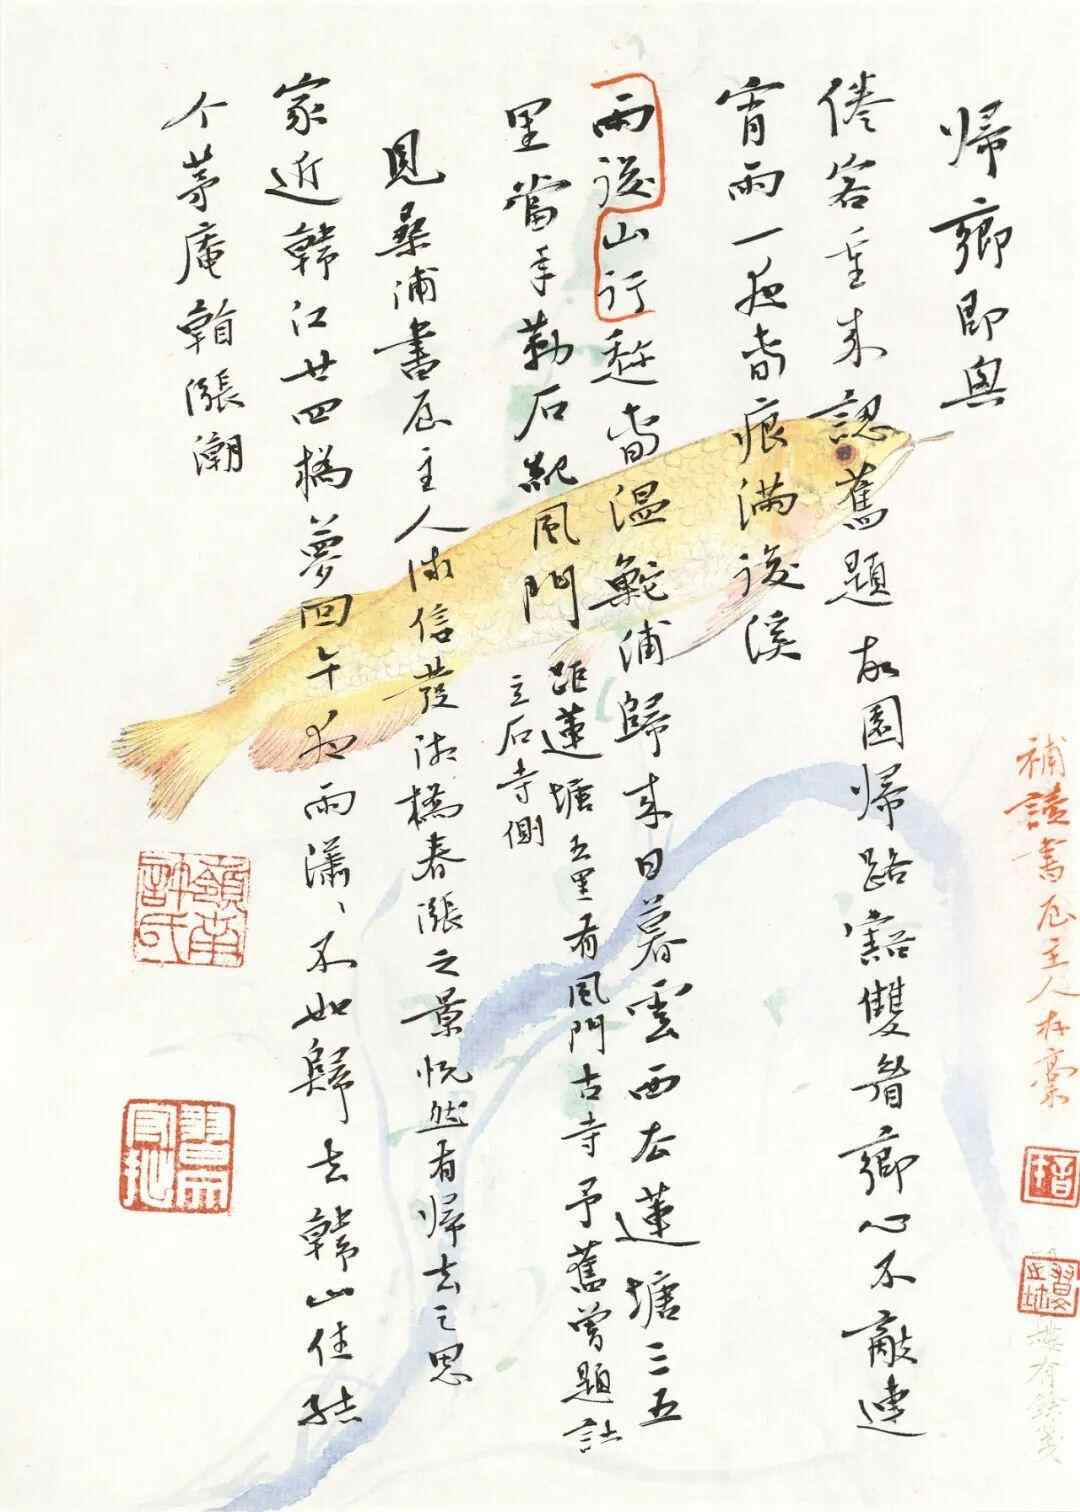 歸鄉即興
倦客重來認舊題故園歸路豁雙眥鄉心不敵連
宵雨一夜春痕滿後溪
雨後山行趁春溫鮀浦歸來日暮雲西去蓮塘三五
里當年勒石紀風門
距蓮塘五里有風門古寺予舊曾題詩
立石寺側
見桑浦書屋主人微信發湘橋春漲之景悅然有歸去之思
家近韓江廿四橋夢回午夜雨瀟〻不如歸去韓山住結
个茅庵看漲潮
補讀書屋主人存稾
嶺南
許氏
習